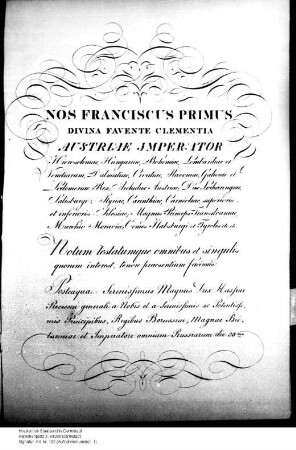 NOS FRANCISCUS PRIMUS
DIVINA FAVENTE CLEMENTIA
AUSTRIAE IMPERATOR
Hierosolimae, Hungariae, Bohemiae, Lombardiae et
Venetiarum, Dalmatiae, Croatiae, Slavoniae, Galiciae et
Lodomeriae Rex, Archidux Austriae, Dux Lotharingiae,
Salisburgi, Styriae, Carinthiae, Carnioliae, superioris
et inferioris Silesiae, Magnus Princeps Transilvaniae,
Marchio Moraviae, Comes Habsburgi et Tyrolis &. &.
Notum testatumque omnibus et singulis
quorum interest, tenore praesentium facimus.
Posteaquam Serenissimus Magnus Dux Hassiae
Recessui generali a Nobis et a Serenissimis ac Potentissi-
mis Principibus, Regibus Borussiae, Magnae Bri-
tanniae et Imperatore omnium Russiarum die 20
Hessisches Staatsarchiv Darmstadt